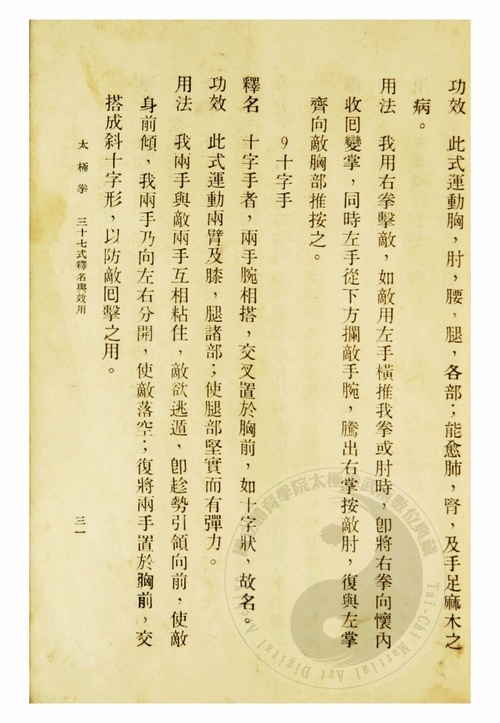 功效　此式運動胸，肘，腰，腿，各部；能愈肺，腎，及手足麻木之
病。
用法　我用右拳擊敵，如敵用左手橫推我拳或肘時，卽將右拳向懷內
收囘變掌，同時左手從下方攔敵手腕，騰出右掌按敵肘，復與左掌
齊向敵胸部推按之。
9十字手
釋名　十字手者，兩手腕相搭，交叉置於胸前，如十字狀，故名。
功效　此式運動兩臂及膝，腿諸部；使腿部堅實而有彈力。
用法　我兩手與敵兩手互相粘住，敵欲逃遁，卽趁勢引領向前，使敵
身前傾，我兩手乃向左右分開，使敵落空；復將兩手置於胸前，交
搭成斜十字形，以防敵囘擊之用。
太極拳　三十七式釋名與效用
三一
Tai-Chi Martial Art Digital